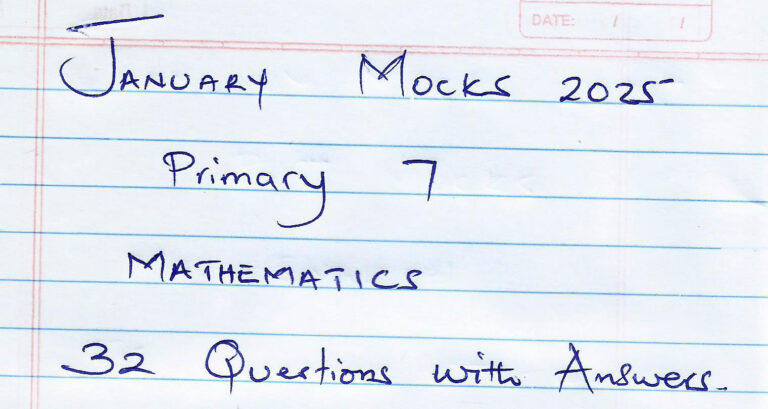 DATE: / /
January Mocks 2025
Primary 7
MATHEMATICS
32 Questions with Answers.